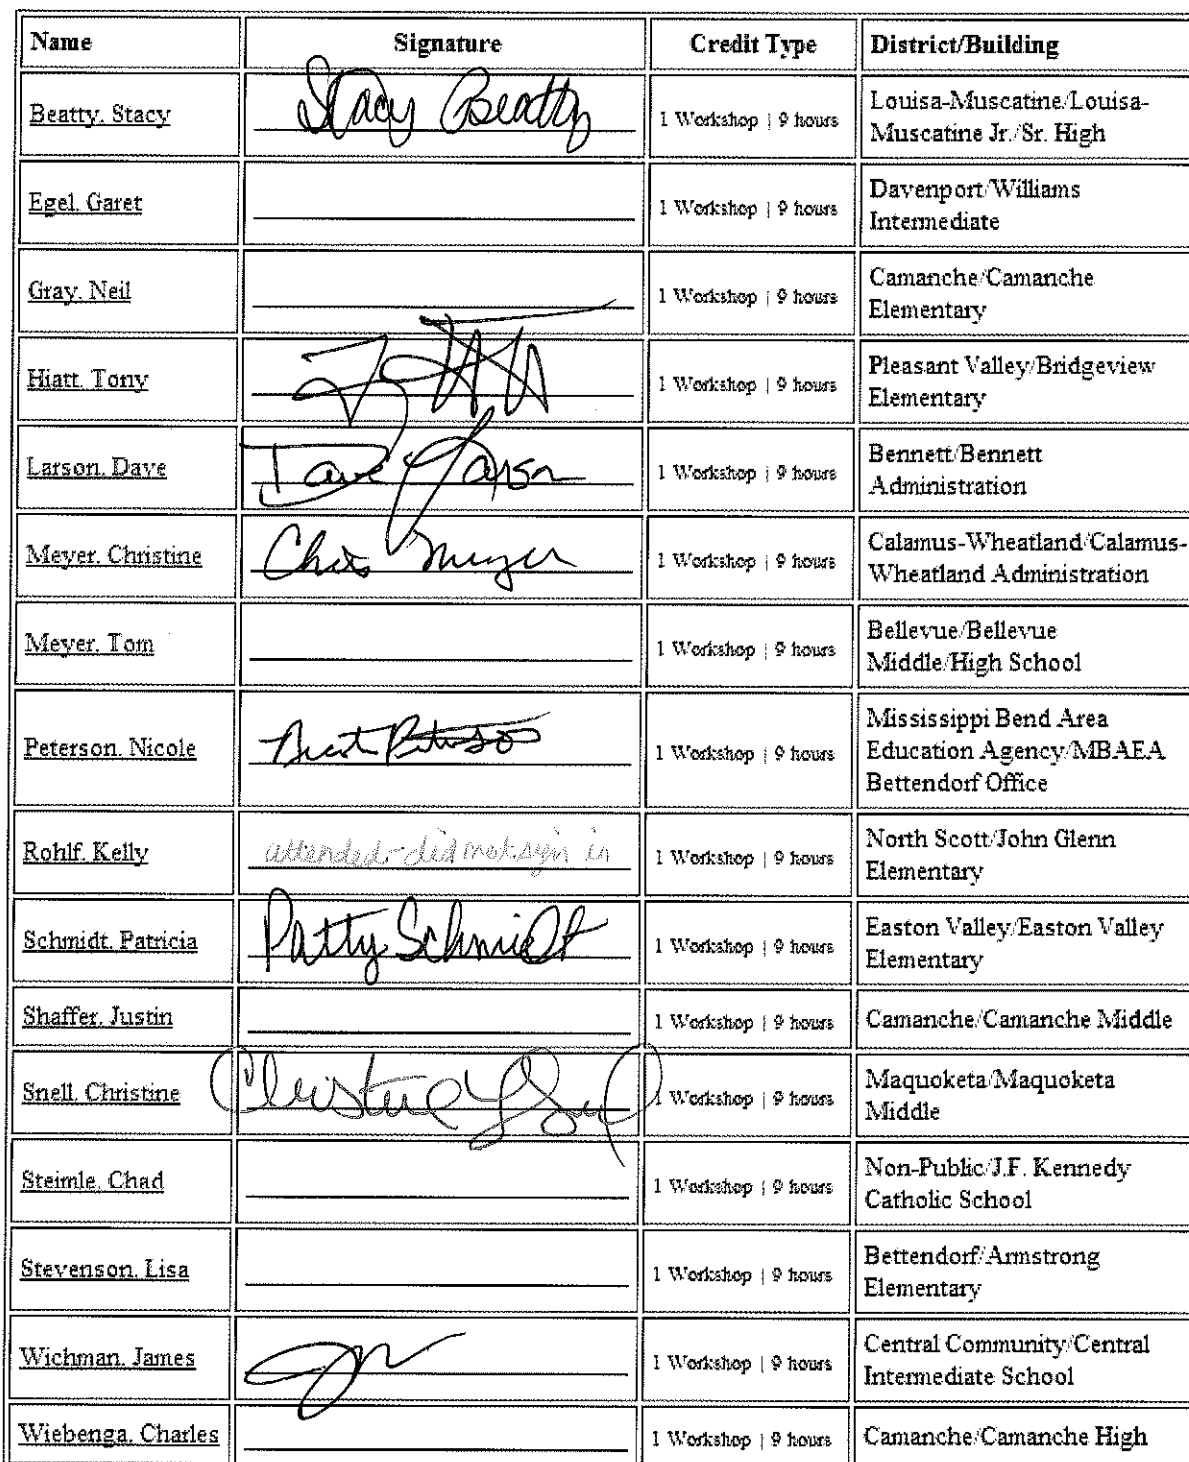 Name Signature Credit Type District/Building
Beatty, Stacy Stacy Beatty 1 Workshop | 9 hours Louisa-Muscatine/Louisa-
Muscatine Jr./Sr. High
Egel, Garet 1 Workshop | 9 hours Davenport/Williams
Intermediate
Gray, Neil 1 Workshop | 9 hours Camanche/Camanche
Elementary
Hiatt, Tony 1 Workshop | 9 hours Pleasant Valley/Bridgeview
Elementary
Larson, Dave Dave Larson 1 Workshop | 9 hours Bennett/Bennett
Administration
Meyer, Christine Chris Meyer 1 Workshop | 9 hours Calamus-Wheatland/Calamus-
Wheatland Administration
Meyer, Tom 1 Workshop | 9 hours Bellevue/Bellevue
Middle/High School
Peterson, Nicole Peterson 1 Workshop | 9 hours Mississippi Bend Area
Education Agency/MBAEA
Bettendorf Office
Rohlf, Kelly attended-did not sign in 1 Workshop | 9 hours North Scott/John Glenn
Elementary
Schmidt, Patricia Patty Schmidt 1 Workshop | 9 hours Easton Valley/Easton Valley
Elementary
Shaffer, Justin 1 Workshop | 9 hours Camanche/Camanche Middle
Snell, Christine Christine L Snell 1 Workshop | 9 hours Maquoketa/Maquoketa
Middle
Steimle, Chad 1 Workshop | 9 hours Non-Public/J.F. Kennedy
Catholic School
Stevenson, Lisa 1 Workshop | 9 hours Bettendorf/Armstrong
Elementary
Wichman, James 1 Workshop | 9 hours Central Community/Central
Intermediate School
Wiebenga, Charles 1 Workshop | 9 hours Camanche/Camanche High